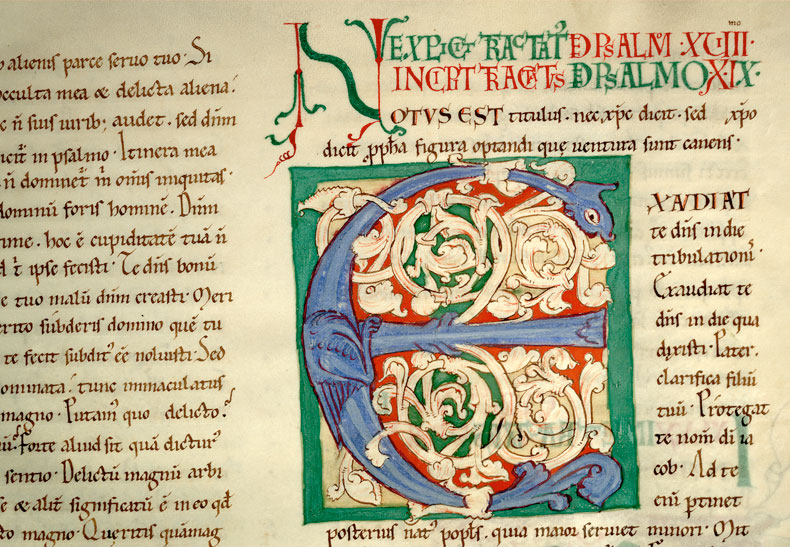 alienis parce servo tuo. Si
occulta mea & delicta aliena.
ñ sius iurib; audet. sed dñm
dicit̃ in psalmo. Itinera mea
ñ dominet̃ m̃ om̃is iniquitas.
dominũ foris hominẽ. Dñm
hoc ẽ cupiditatẽ tuã ñ
t̃ ipse fecisti. Te dñs bonũ
e tuo malũ dñm creasti. Meri
erito suƀderis domino quẽ tu
te fecit suƀdit̃ ẽẽ noluisti. Sed
nominata. tunc immaculatus
magno. Putam̃ quo delicto.
Forte aliud sit quã dictur̃
sentio. Delictũ magnũ arbi
se & alit̃ significatũ ẽ in eo qđ
to magno. Queritis quãmag
EXPLICIT TRACTAT' DE PSALM XVIIII.
mo
INCIPIT TRACTATUS DE PSALMO XIX.
NOTUS EST titulus. nec xp̃c dicit. sed xp̃o
dicit. pph̃a figura optandi quę ventura sunt canens.
EXAUDIAT
te dñs in die
tribulationi
Exaudiat te
dñs in die qua
dixisti. Pater.
clarifica filiũ
tuũ. Protegat
te nom̃ di ia
cob. Ad te
eni ptinet
posterius nat' popl's. quia maior serviet minori. Mit